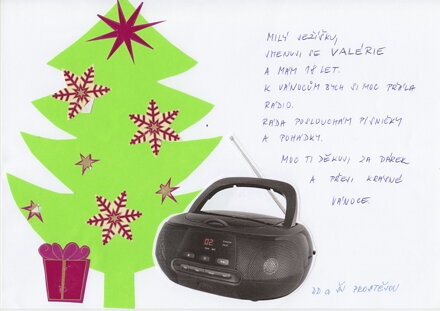 MILÝ JEŽÍŠKU,
JMENUJI SE VALÉRIE
A MÁM 18 LET.
K VÁNOCŮM BYCH SI MOC PŘÁLA
RÁDIO.
RÁDA POSLOUCHÁM PÍSNIČKY
A POHÁDKY.
MOC TI DĚKUJI ZA DÁREK
A PŘEJI KRÁSNÉ
VÁNOCE.
02
DD a ŠJ PROSTĚJOV